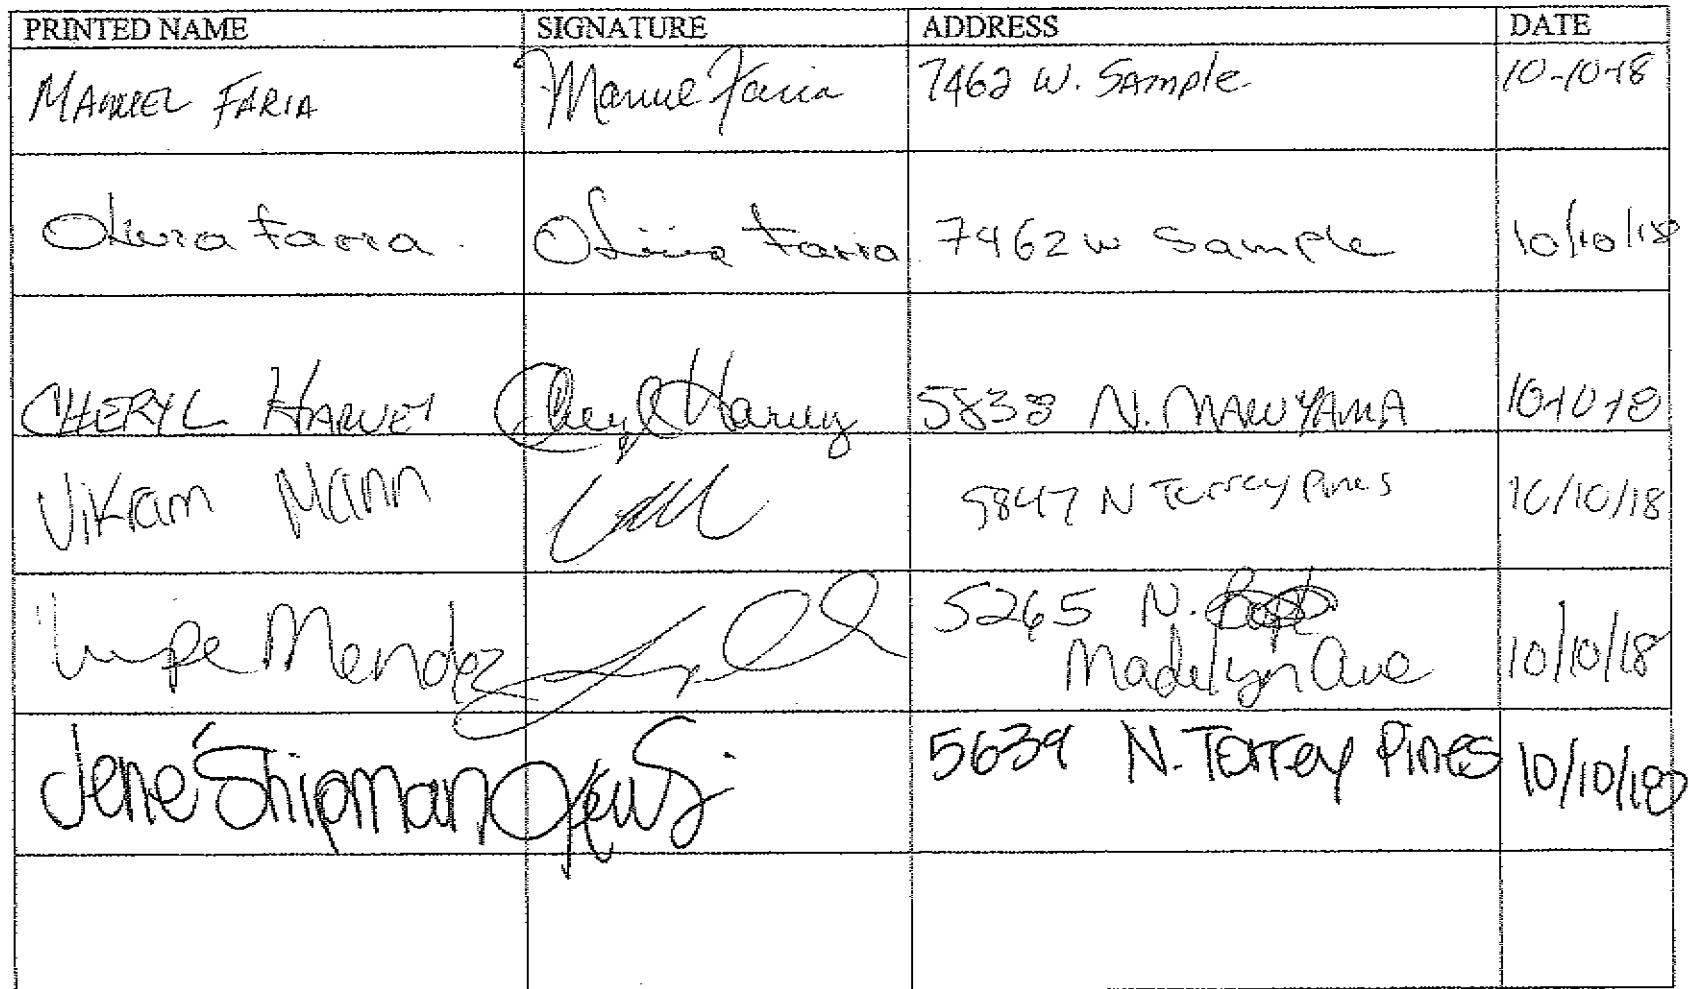 PRINTED NAME SIGNATURE ADDRESS DATE
MANUEL FARIA Manuel Faria 7462 W. Sample 10-10-18
Olivia Faria Olivia Faria 7462 W Sample 10/10/18
CHERYL HARVEY Cheryl Harvey 5838 N. MARUYAMA 10-10-18
Vikram Mann 5847 N Torrey Pines 10/10/18
Lupe Mendez 5265 N.
Madelyn Ave 10/10/18
Jené Shipman 5639 N. Torrey Pines 10/10/18